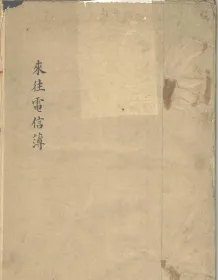 來往電信簿